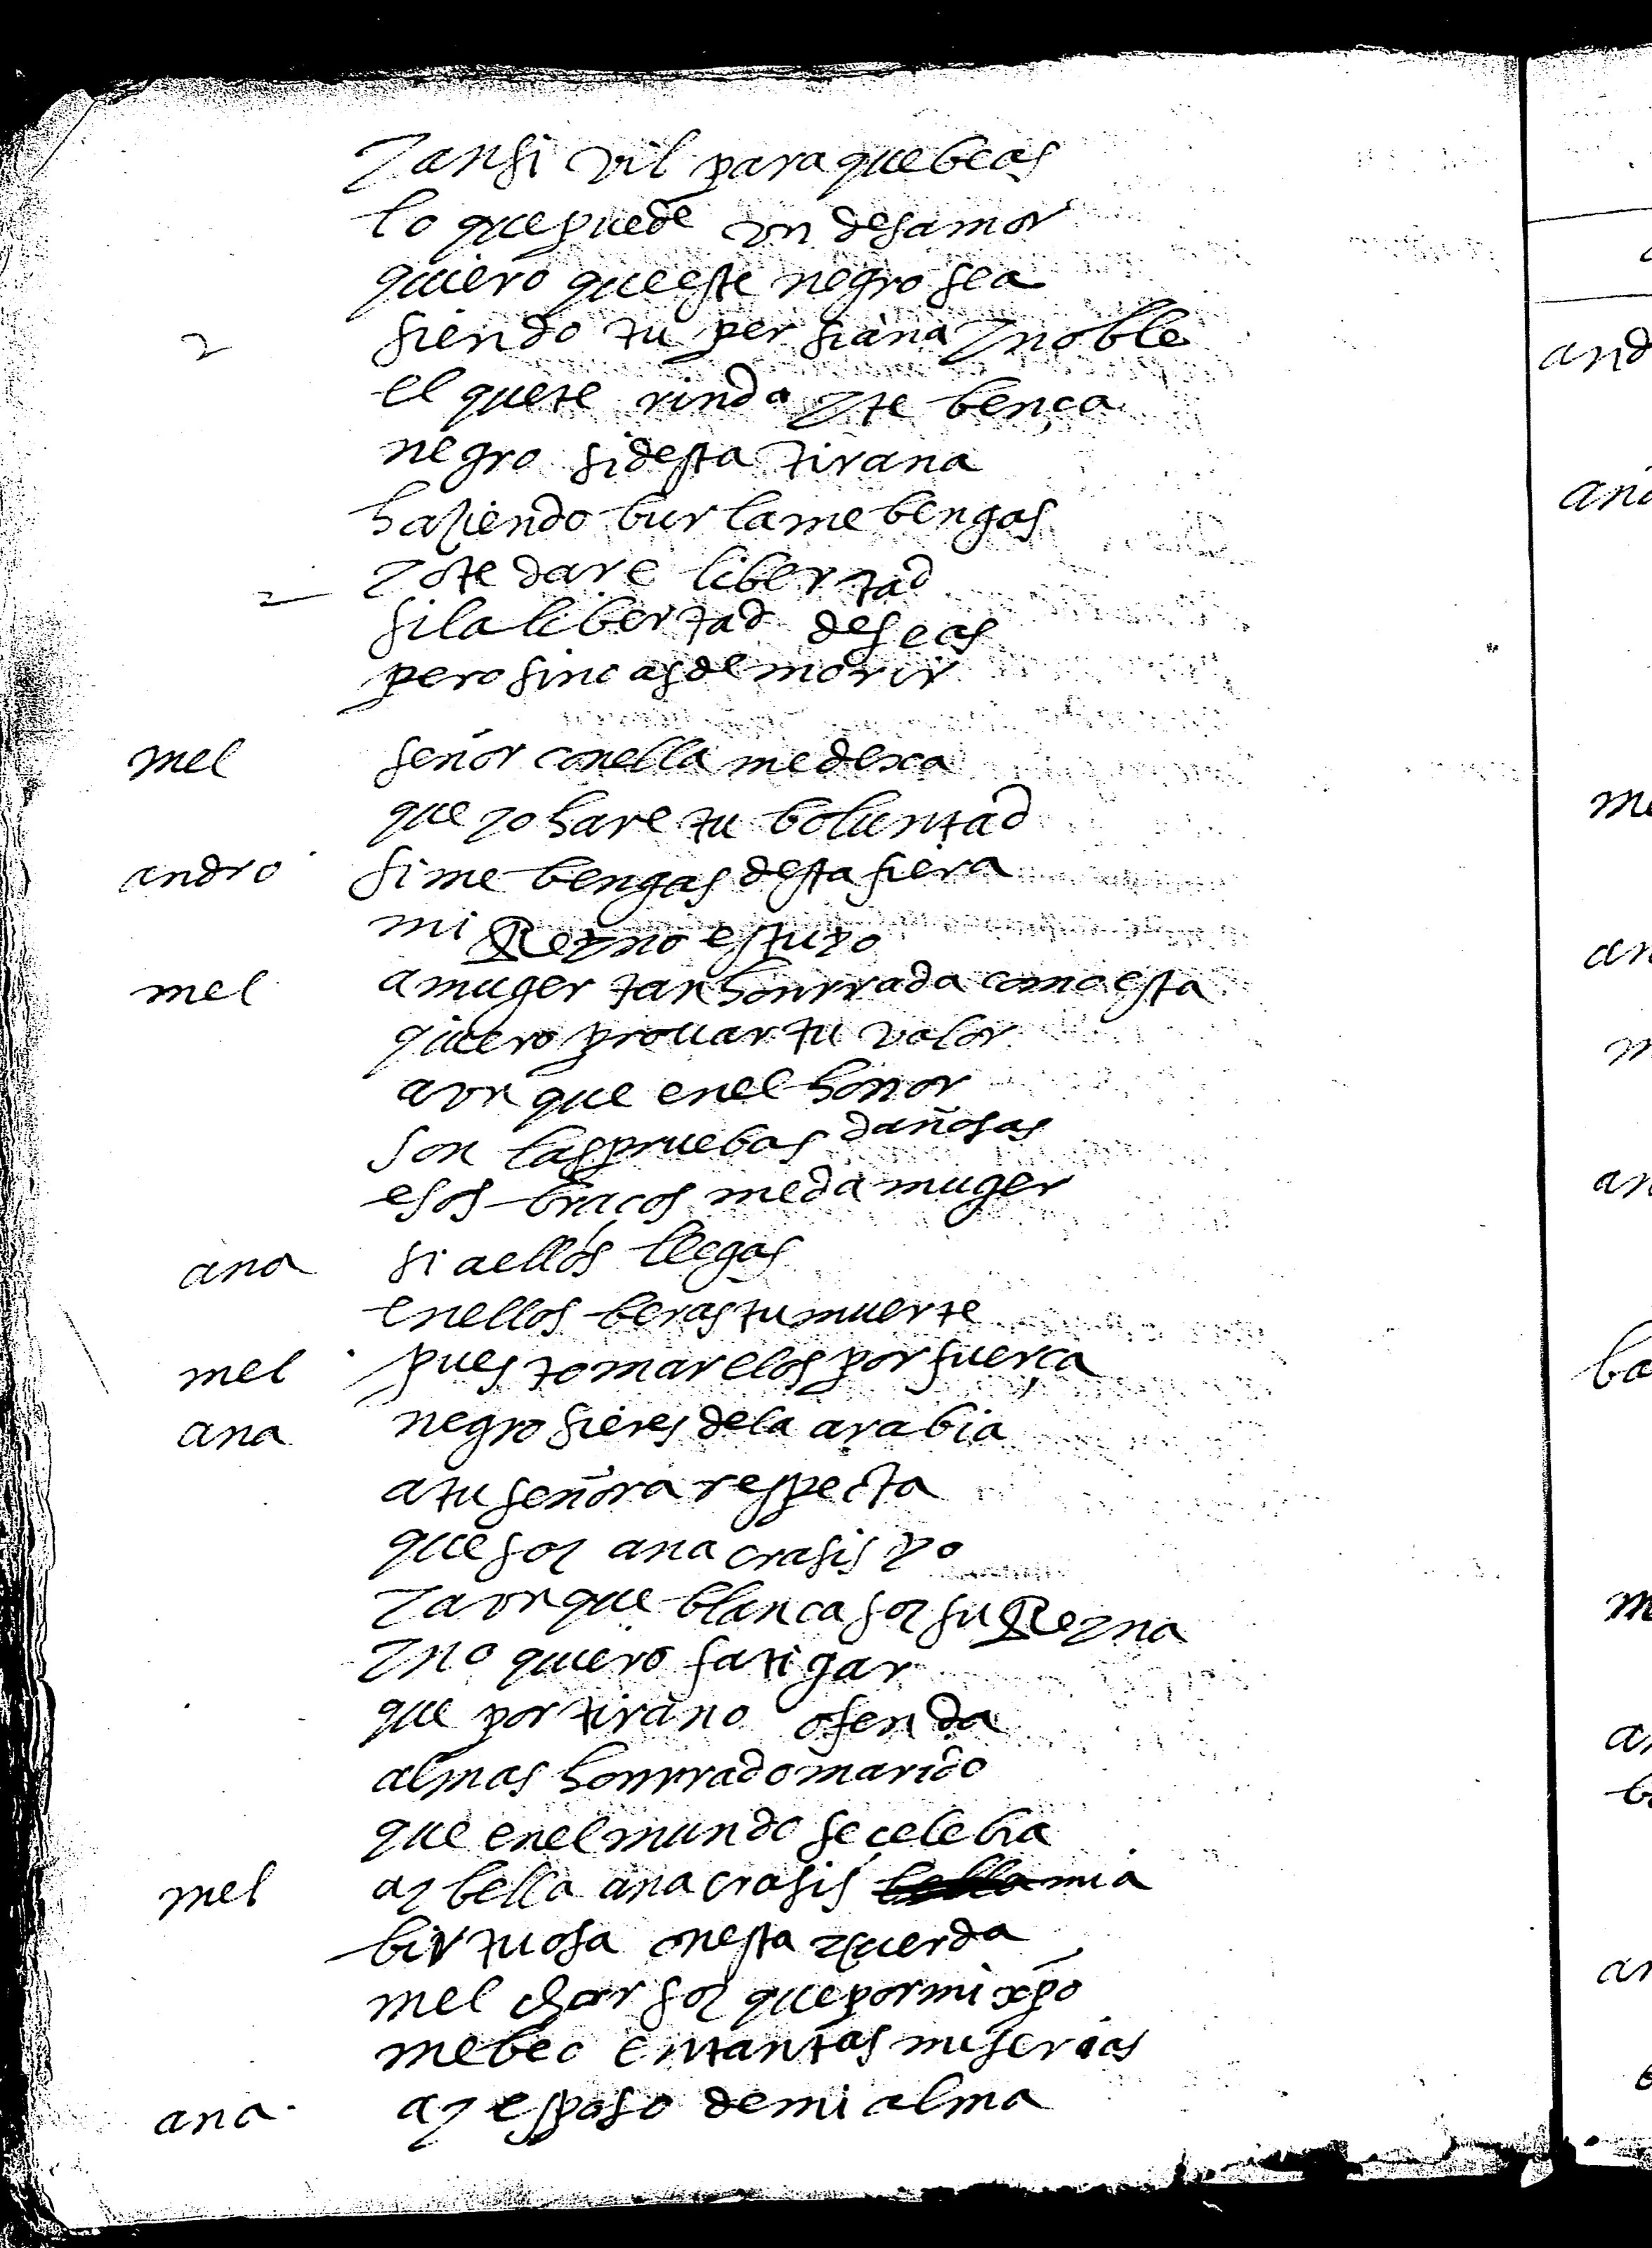 yansi vil para que beas
lo que puede vn desamor
quiero que este negro sea
siendo tu persiana y noble
el que te rinda y te bença
negro si desta tirana
haziendo burla me bengas
yo te dare libertad
si la libertad deseas
pero sino as de morir
mel señor con ella me dexa
que yo hare tu boluntad
andro si me bengas desta fiera
mi Reyno es tuyo
mel a muger tan honrrada como esta
quiero prouar tu valor
aunque en el honor
son las pruebas dañosas
esos braços me da muger
ana si a ellos llegas
en ellos beras tu muerte
mel pues tomarelos por fuerça
ana negro si eres de la arabia
a tu señora respecta
que soy anacrasis yo
y avnque blanca soy su Reyna
y no quiero fatigar
que por tirano ofenda
al mas honrrado marido
que en el mundo se çelebra
mel ay bella anacrasis mia
birtuosa onesta y cuerda
melchor soy que por mi xpo
me beo en tantas miserias
ana ay esposo de mi alma